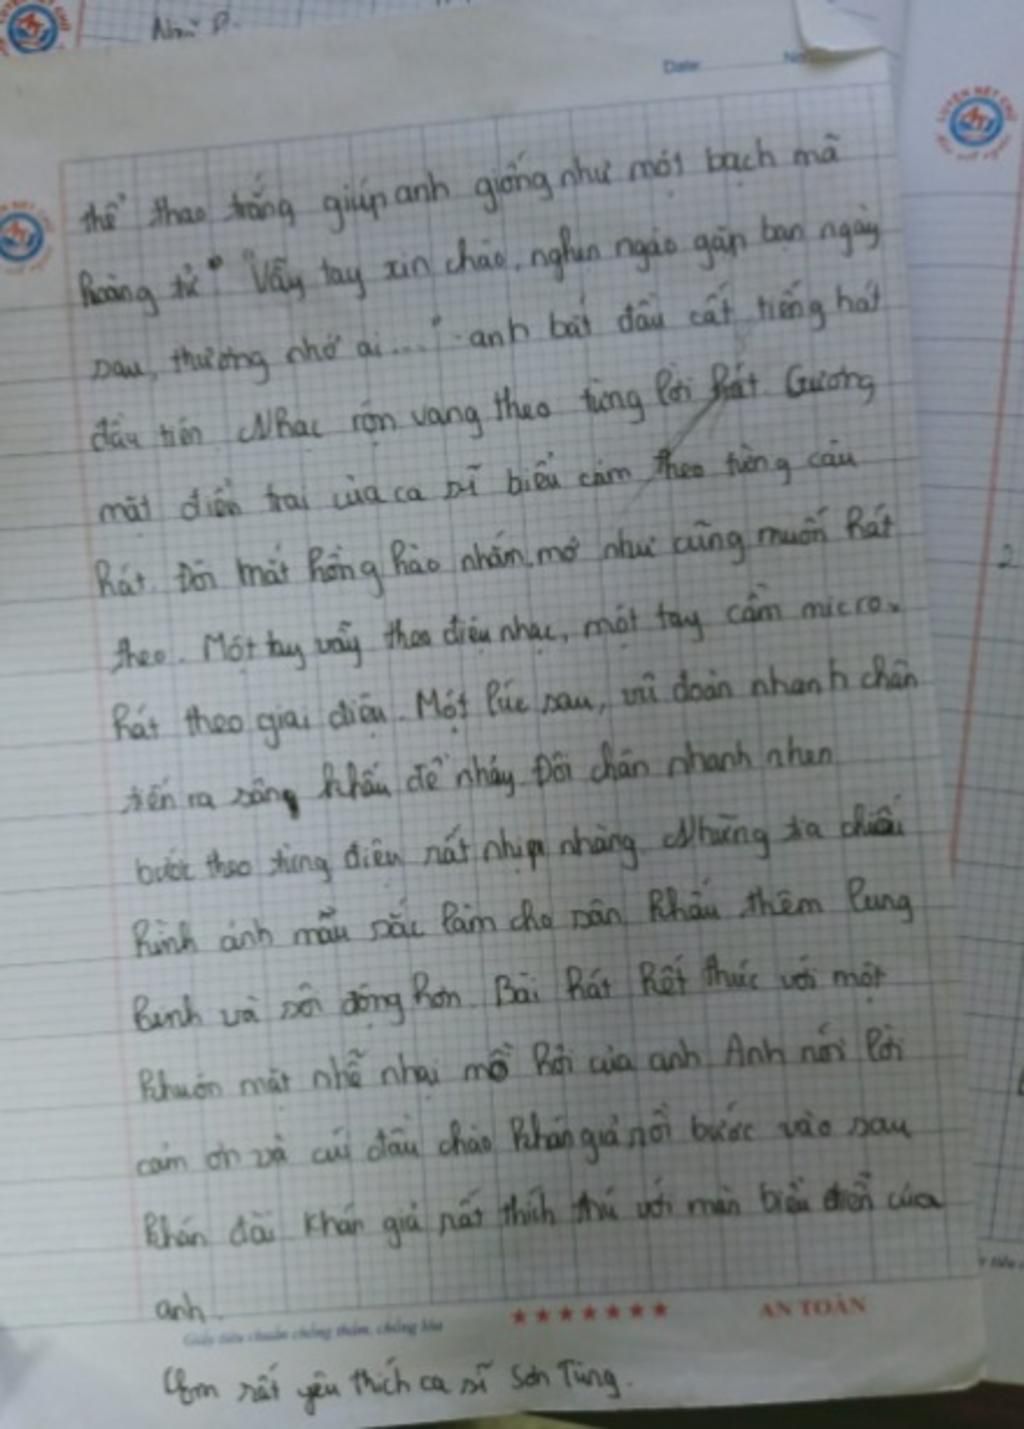 Như P.
Date: No
thể thao trắng giúp anh giống như một bạch mã
hoàng tử. "Vẫy tay xin chào, nghìn ngào gặp bạn ngày
sau, thương nhớ ai..." anh bắt đầu cất tiếng hát
đầu tiên Nhạc rộn vang theo từng lời hát. Gương
mặt điển trai của ca sĩ biểu cảm theo từng câu
hát. Đôi mắt hồng hào nhắm mở như cũng muốn hát
theo. Một tay vẫy theo điệu nhạc, một tay cầm micro
hát theo giai điệu. Một lúc sau, vũ đoàn nhanh chân
tiến ra sâng khấu để nhảy Đôi chân nhanh nhẹn
bước theo từng điệu rất nhịp nhàng. Những tia chiếu
hình ảnh mầu sắc làm cho sân khấu thêm lung
linh và sôi động hơn. Bài hát kết thúc với một
khuôn mặt nhễ nhại mồ hôi của anh Anh nói lời
cảm ơn và cúi đầu chào khán giả rồi bước vào sau
khán đài Khán giả rất thích thú với màn biểu diễn của
anh.
Giấy tiêu chuẩn chống thấm, chống lóa
AN TOÀN
Em rất yêu thích ca sĩ Sơn Tùng.
LUYỆN NÉT CHỮ
2